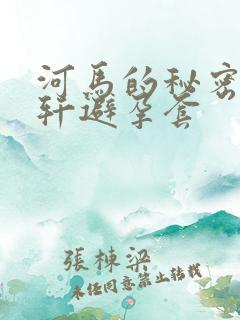 河馬的秘密
軒避孕套
張棟梁
未经同意禁止转载